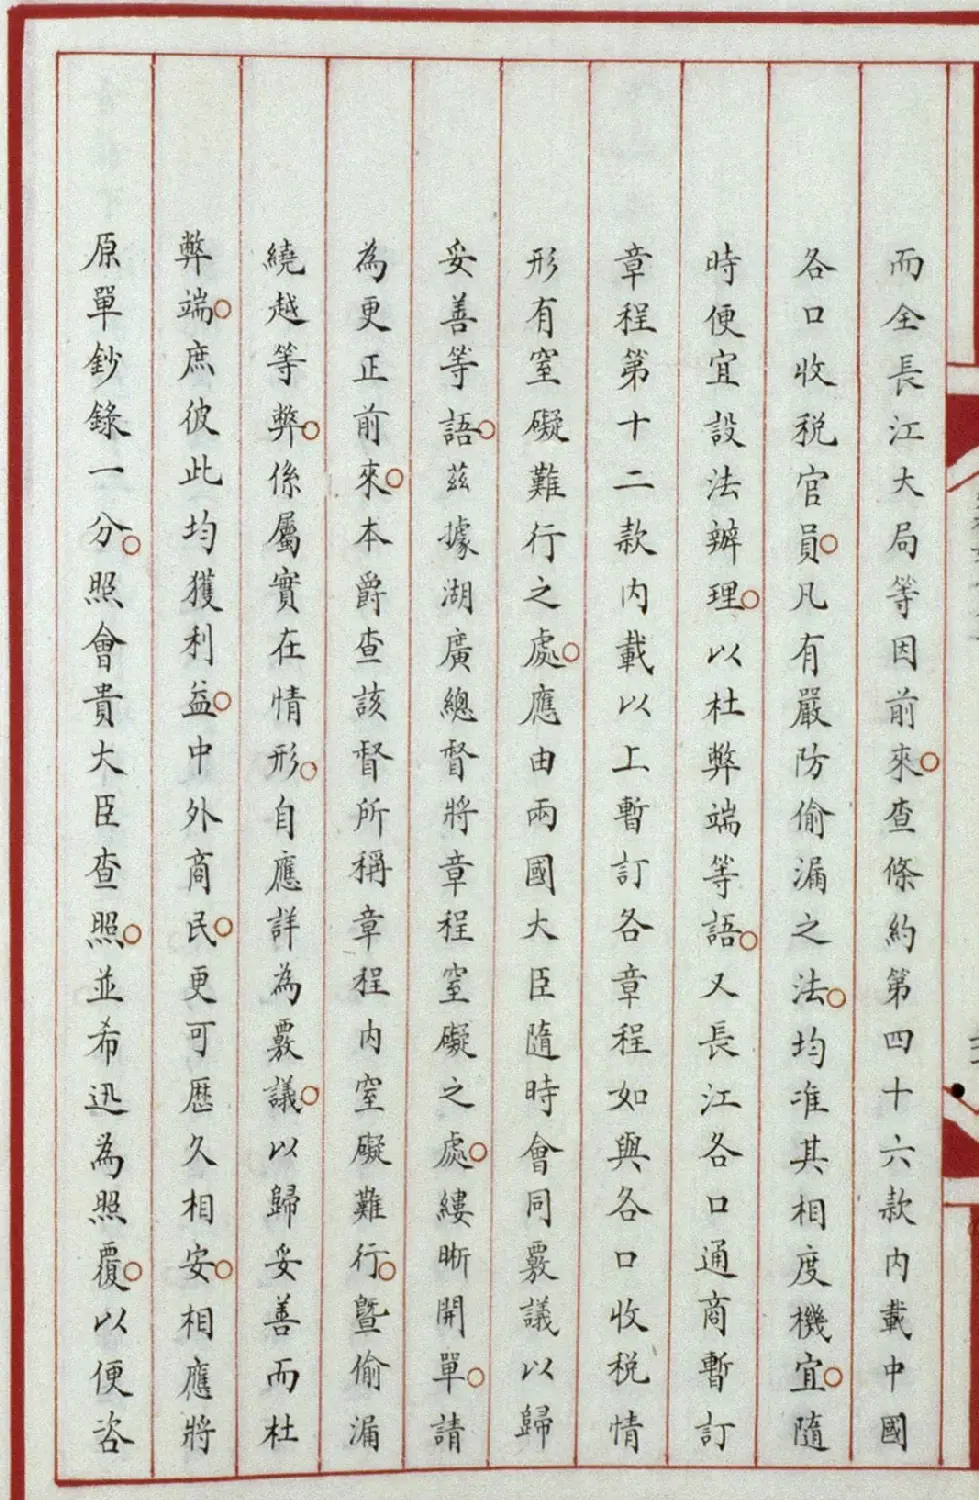 而全長江大局等因前來○查條約第四十六款內載中國
各口收稅官員○凡有嚴防偷漏之法○均准其相度機宜○隨
時便宜設法辦理○以杜弊端等語○又長江各口通商暫訂
章程第十二款內載以上暫訂各章程如與各口收稅情
形有窒礙難行之處○應由兩國大臣隨時會同覈議以歸
妥善等語○茲據湖廣總督將章程窒礙之處○縷晰開單○請
為更正前來○本爵查該督所稱章程內窒礙難行○暨偷漏
繞越等弊○係屬實在情形○自應詳為覈議○以歸妥善而杜
弊端○庶彼此均獲利益○中外商民○更可歷久相安○相應將
原單鈔錄一分○照會貴大臣查照○並希迅為照覆○以便咨